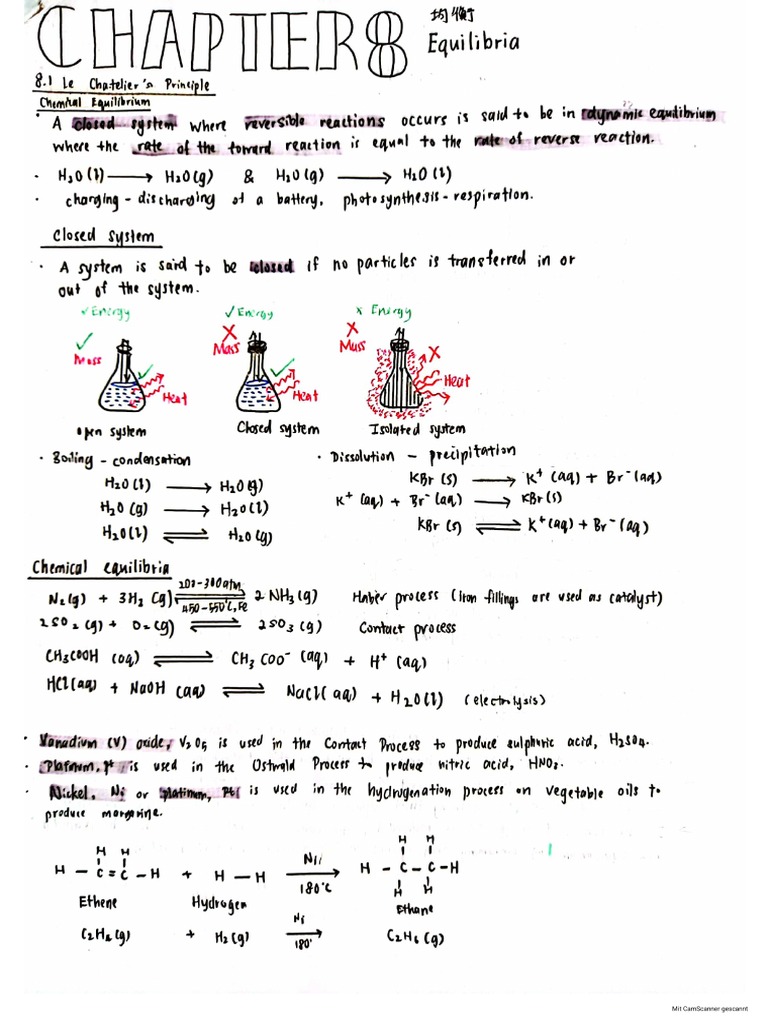 CHAPTER 8 均衡
Equilibria
8.1 Le Chatelier's Principle
Chemical Equilibrium
· A closed system where reversible reactions occurs is said to be in dynamic equilibrium
where the rate of the toward reaction is equal to the rate of reverse reaction.
· H₂O (l) ⟶ H₂O(g) & H₂O (g) ⟶ H₂O (l)
· charging - discharging of a battery, photosynthesis - respiration.
Closed System
· A system is said to be closed if no particles is transferred in or
out of the system.
✓ Energy ✓ Energy x Energy
✓ Mass ✓ Heat
X Mass ✓ Heat
X Mass X Heat
open system Closed system Isolated system
· Boiling - condensation
H₂O (l) ⟶ H₂O(g)
H₂O (g) ⟶ H₂O(l)
H₂O(l) ⇌ H₂O(g)
· Dissolution - precipitation
KBr (s) ⟶ K⁺ (aq) + Br⁻(aq)
K⁺ (aq) + Br⁻ (aq) ⟶ KBr(s)
KBr (s) ⇌ K⁺(aq) + Br⁻ (aq)
Chemical equilibria
N₂(g) + 3H₂ (g) 200-300atm ⇌ 450-550°C, Fe 2 NH₃(g) Haber process (Iron fillings are used as catalyst)
2SO₂ (g) + O₂(g) ⇌ 2SO₃ (g) Contact process
CH₃COOH (aq) ⇌ CH₃COO⁻ (aq) + H⁺ (aq)
HCl(aq) + NaOH (aq) ⇌ NaCl(aq) + H₂O(l) (electrolysis)
· Vanadium (V) oxide, V₂O₅ is used in the Contact Process to produce sulphuric acid, H₂SO₄.
· Platinum, Pt is used in the Ostwald Process to produce nitric acid, HNO₃.
· Nickel, Ni or platinum, Pt is used in the hydrogenation process on vegetable oils to
produce margarine.
H H H H
H - C = C - H + H - H Ni ⟶ 180°C H - C - C - H
H H
Ethene Hydrogen Ethane
C₂H₄(g) + H₂(g) Ni ⟶ 180° C₂H₆(g)
Mit CamScanner gescannt